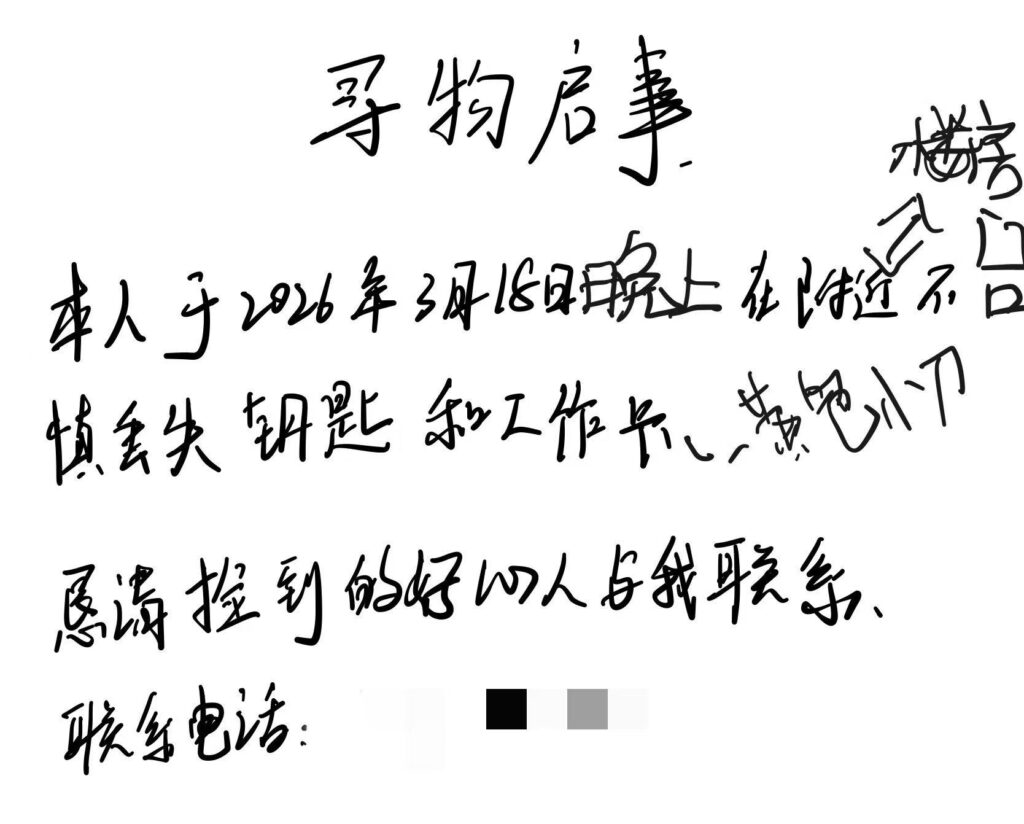 寻物启事
本人于2026年3月18日晚上在附近不
慎丢失钥匙和工作卡、黄色小刀
恳请捡到的好心人与我联系、
联系电话: